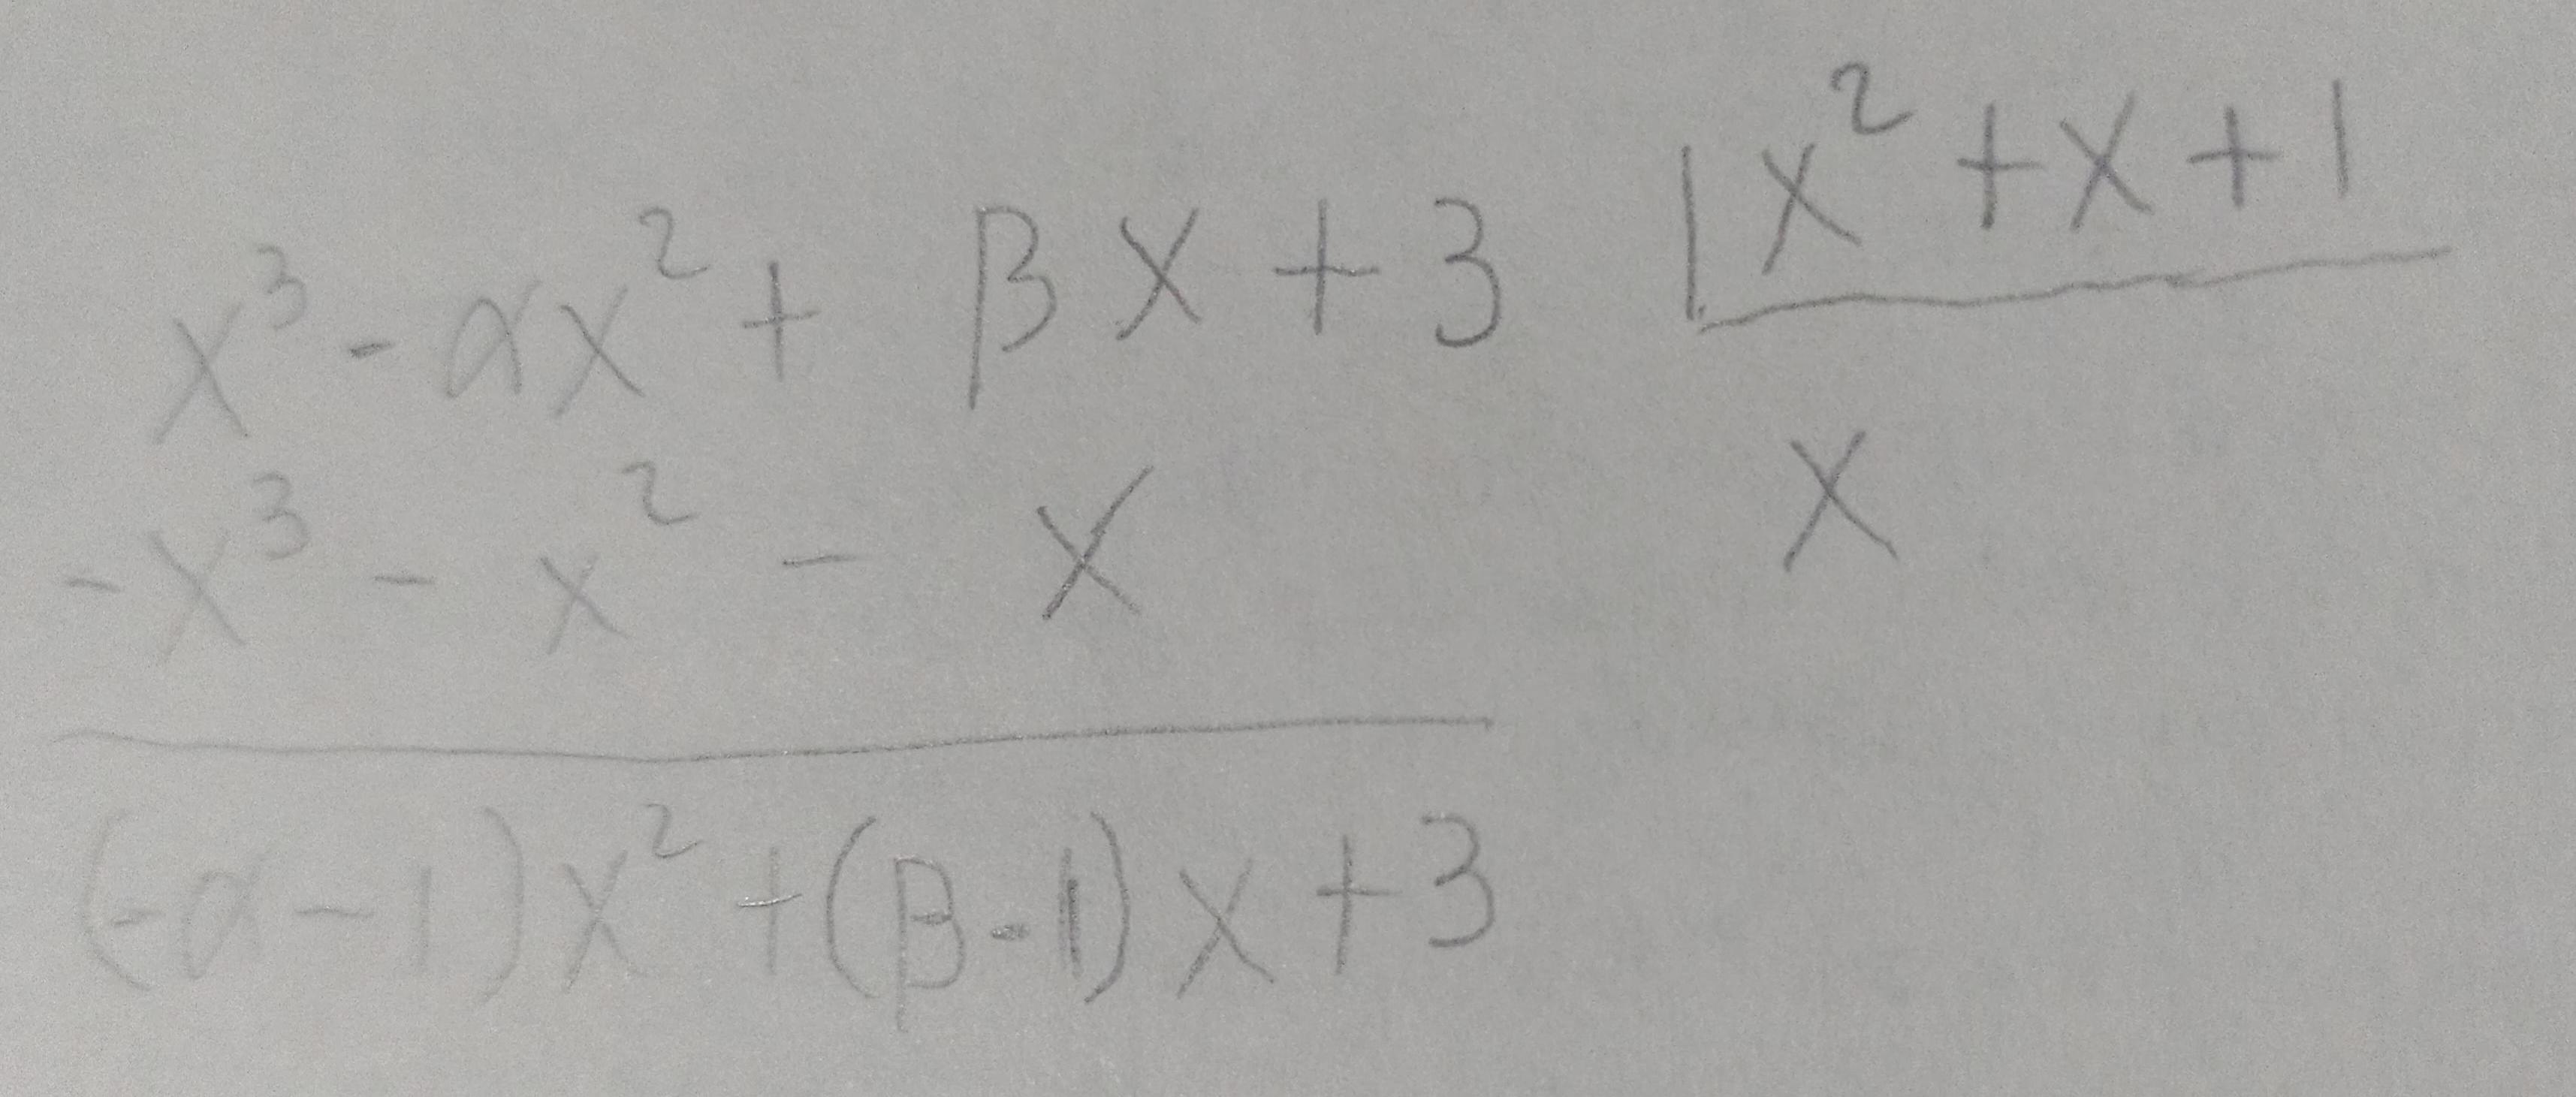 x³ - αx² + βx + 3 |x² + x + 1
-x³ - x² - x x
(-α-1)x² + (β-1)x + 3